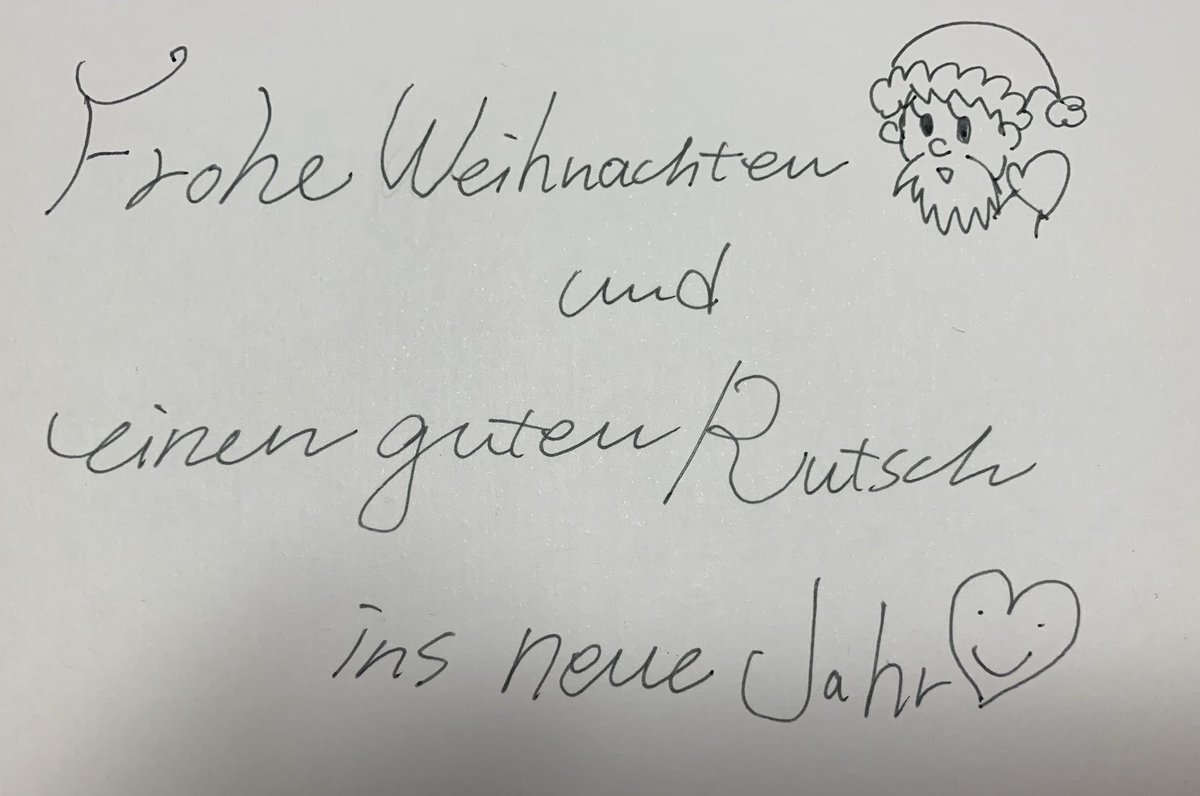 Frohe Weihnachten
und
einen guten Rutsch
ins neue Jahr